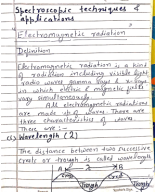 Spectroscopic techniques &
applications
"Electromagnetic radiation"
Definition
Electromagnetic radiation is a kind
of radiation including visible light
radio waves gamma rays & x-rays
in which electric & magnetic fields
vary simultaneously.
All electromagnetic radiations
are made up of waves There are
three characteristics of waves
These are :-
(i) Wavelength (λ)
The distance between two successive
crests or trough is called wavelength
A B
Trough Trough